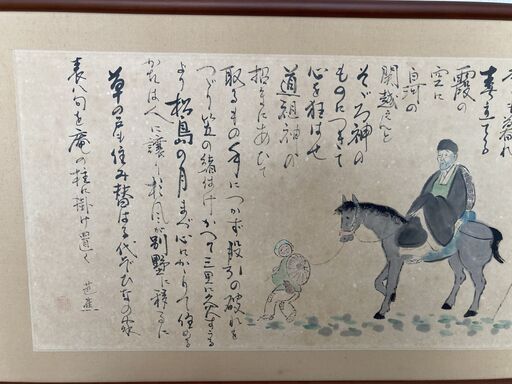 も暮れ
春立てる
霞の
空に
白河の
関越えんと
そぞろ神の
ものにつきて
心を狂はせ
道祖神の
招きにあひて
取るもの手につかず股引の破れを
つづり笠の緒付けかへて三里に灸すうる
より松島の月まづ心にかかりて住める
かたは人に譲り杉風が別墅に移るに
草の戸も住み替はる代ぞひなの家
表八句を庵の柱に掛け置く
芭蕉